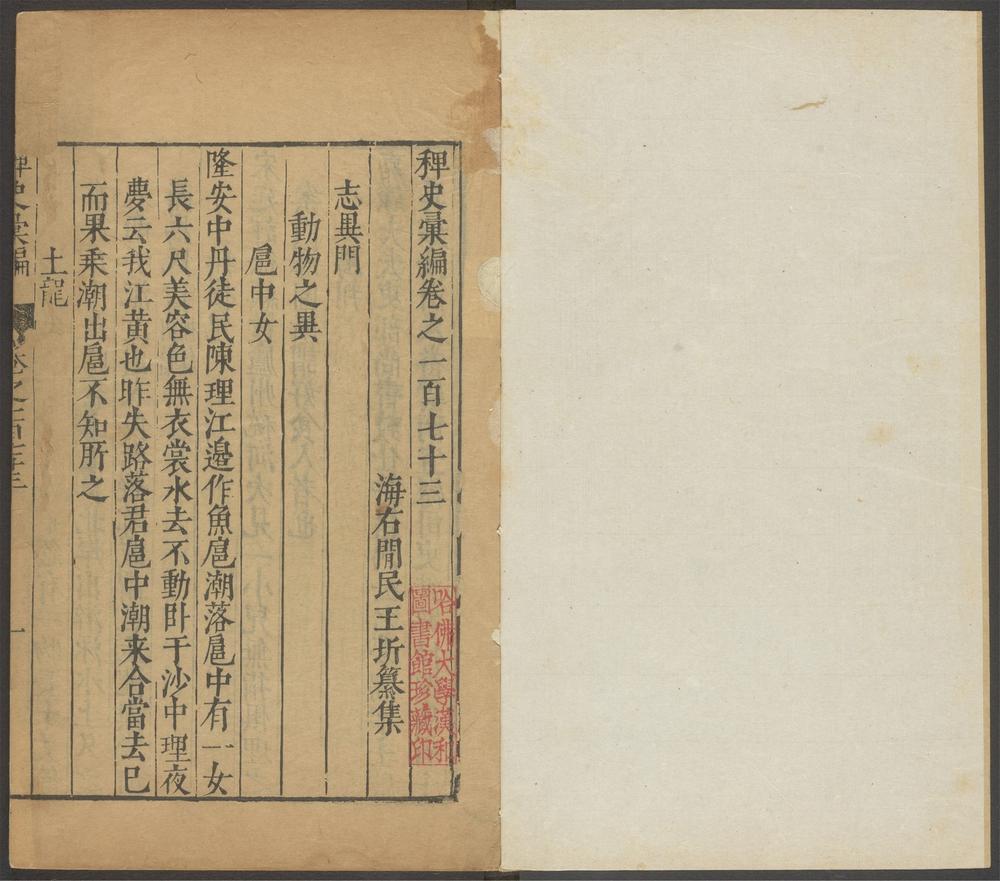 稗史彙編卷之一百七十三
海右閒民王圻纂集
志異門
動物之異
扈中女
隆安中丹徒民陳理江邊作魚扈潮落扈中有一女
長六尺美容色無衣裳水去不動卧于沙中理夜
夢云我江黃也昨失路落君扈中潮来合當去已
而果乗潮出扈不知所之
土龍
稗史彙編
卷之一百七十三
一
哈佛大學漢和
圖書館珍藏印